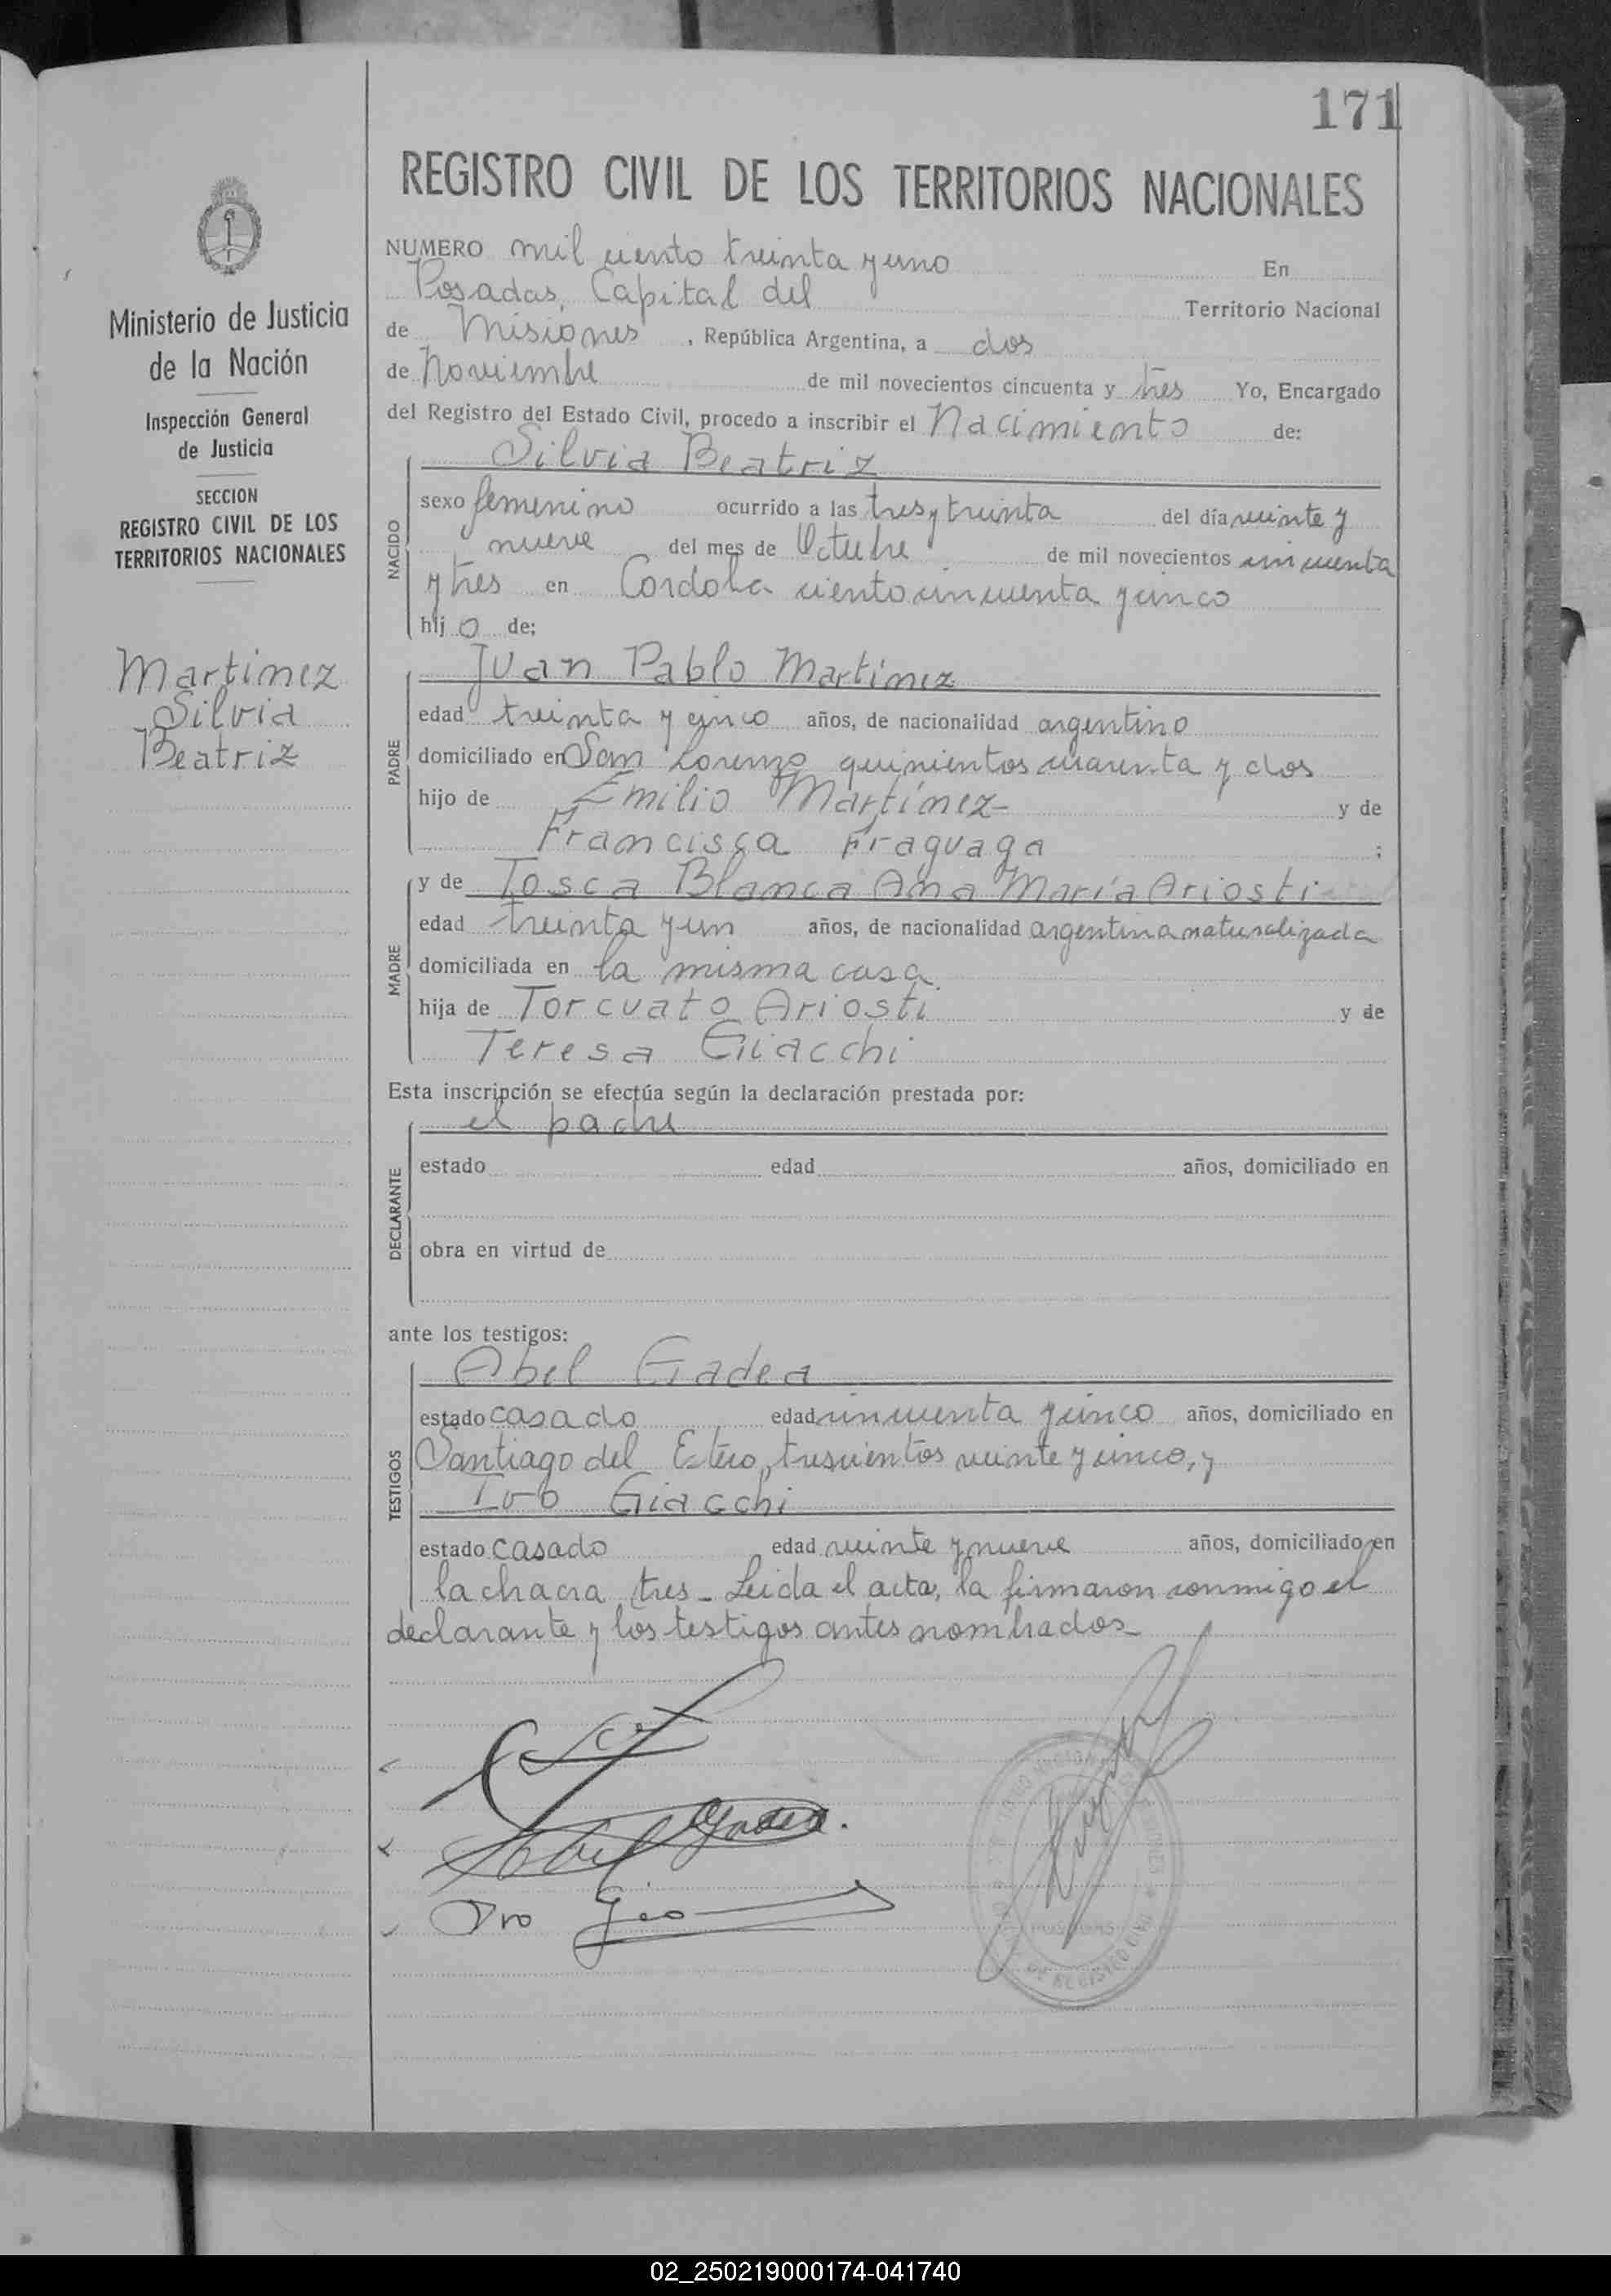 171
REGISTRO CIVIL DE LOS TERRITORIOS NACIONALES
Ministerio de Justicia
de la Nación
Inspección General
de Justicia
SECCION
REGISTRO CIVIL DE LOS
TERRITORIOS NACIONALES
Martinez
Silvia
Beatriz
NUMERO mil ciento treinta y uno En
Posadas, Capital del Territorio Nacional
de Misiones, República Argentina, a dos
de Noviembre de mil novecientos cincuenta y tres Yo, Encargado
del Registro del Estado Civil, procedo a inscribir el Nacimiento de:
Silvia Beatriz
NACIDO
sexo femenino ocurrido a las tres y treinta del día veinte y
nueve del mes de Octubre de mil novecientos cincuenta
y tres en Cordoba ciento cincuenta y cinco
hij o de:
Juan Pablo Martinez
PADRE
edad treinta y cinco años, de nacionalidad argentino
domiciliado en San Lorenzo quinientos cuarenta y dos
hijo de Emilio Martínez y de
Francisca Fraguaga ;
y de Tosca Blanca Ana María Ariosti
MADRE
edad treinta y un años, de nacionalidad argentina naturalizada
domiciliada en la misma casa
hija de Torcuato Ariosti y de
Teresa Giacchi
Esta inscripción se efectúa según la declaración prestada por:
el padre
DECLARANTE
estado edad años, domiciliado en
obra en virtud de
ante los testigos:
Abel Gadea
TESTIGOS
estado casado edad cincuenta y cinco años, domiciliado en
Santiago del Estero, trescientos veinte y cinco, y
Ivo Giacchi
estado casado edad veinte y nueve años, domiciliado en
la chacra tres - Leida el acta, la firmaron conmigo el
declarante y los testigos antes nombrados-
Abel Gadea.
Ivo
02_250219000174-041740